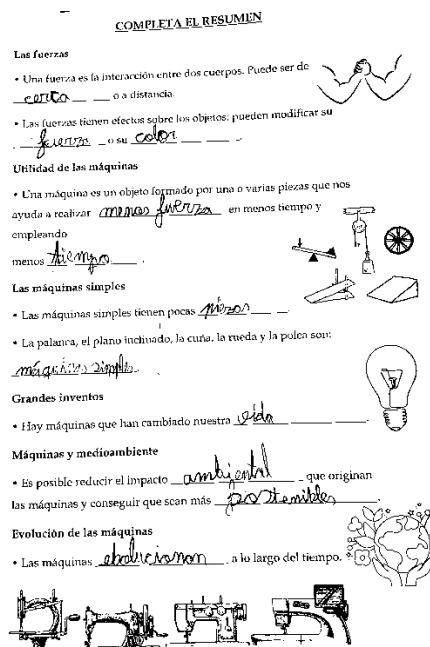 COMPLETA EL RESUMEN
Las fuerzas
• Una fuerza es la interacción entre dos cuerpos. Puede ser de
cerca o a distancia.
• Las fuerzas tienen efectos sobre los objetos: pueden modificar su
fuerza o su color.
Utilidad de las máquinas
• Una máquina es un objeto formado por una o varias piezas que nos
ayuda a realizar menos fuerza en menos tiempo y
empleando
menos tiempo.
Las máquinas simples
• Las máquinas simples tienen pocas piezas.
• La palanca, el plano inclinado, la cuña, la rueda y la polea son:
máquinas simples.
Grandes inventos
• Hay máquinas que han cambiado nuestra vida.
Máquinas y medioambiente
• Es posible reducir el impacto ambiental que originan
las máquinas y conseguir que sean más postenibles.
Evolución de las máquinas
• Las máquinas a lo largo del tiempo.